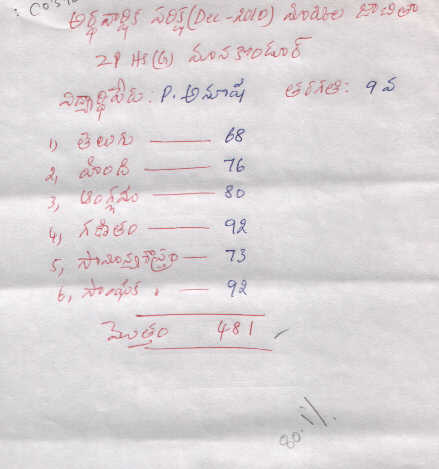 అర్థ వార్షిక పరీక్ష (Dec - 2010) మార్కుల జాబితా
ZPHS(G) మానకొండూర్
విద్యార్థి పేరు : P. అనూష తరగతి : 9 వ
1) తెలుగు 68
2, హింది 76
3, ఆంగ్లము 80
4, గణితం 92
5, సామాన్యశాస్త్రం 73
6, సాంఘిక . 92
మొత్తం 481
80.1%.